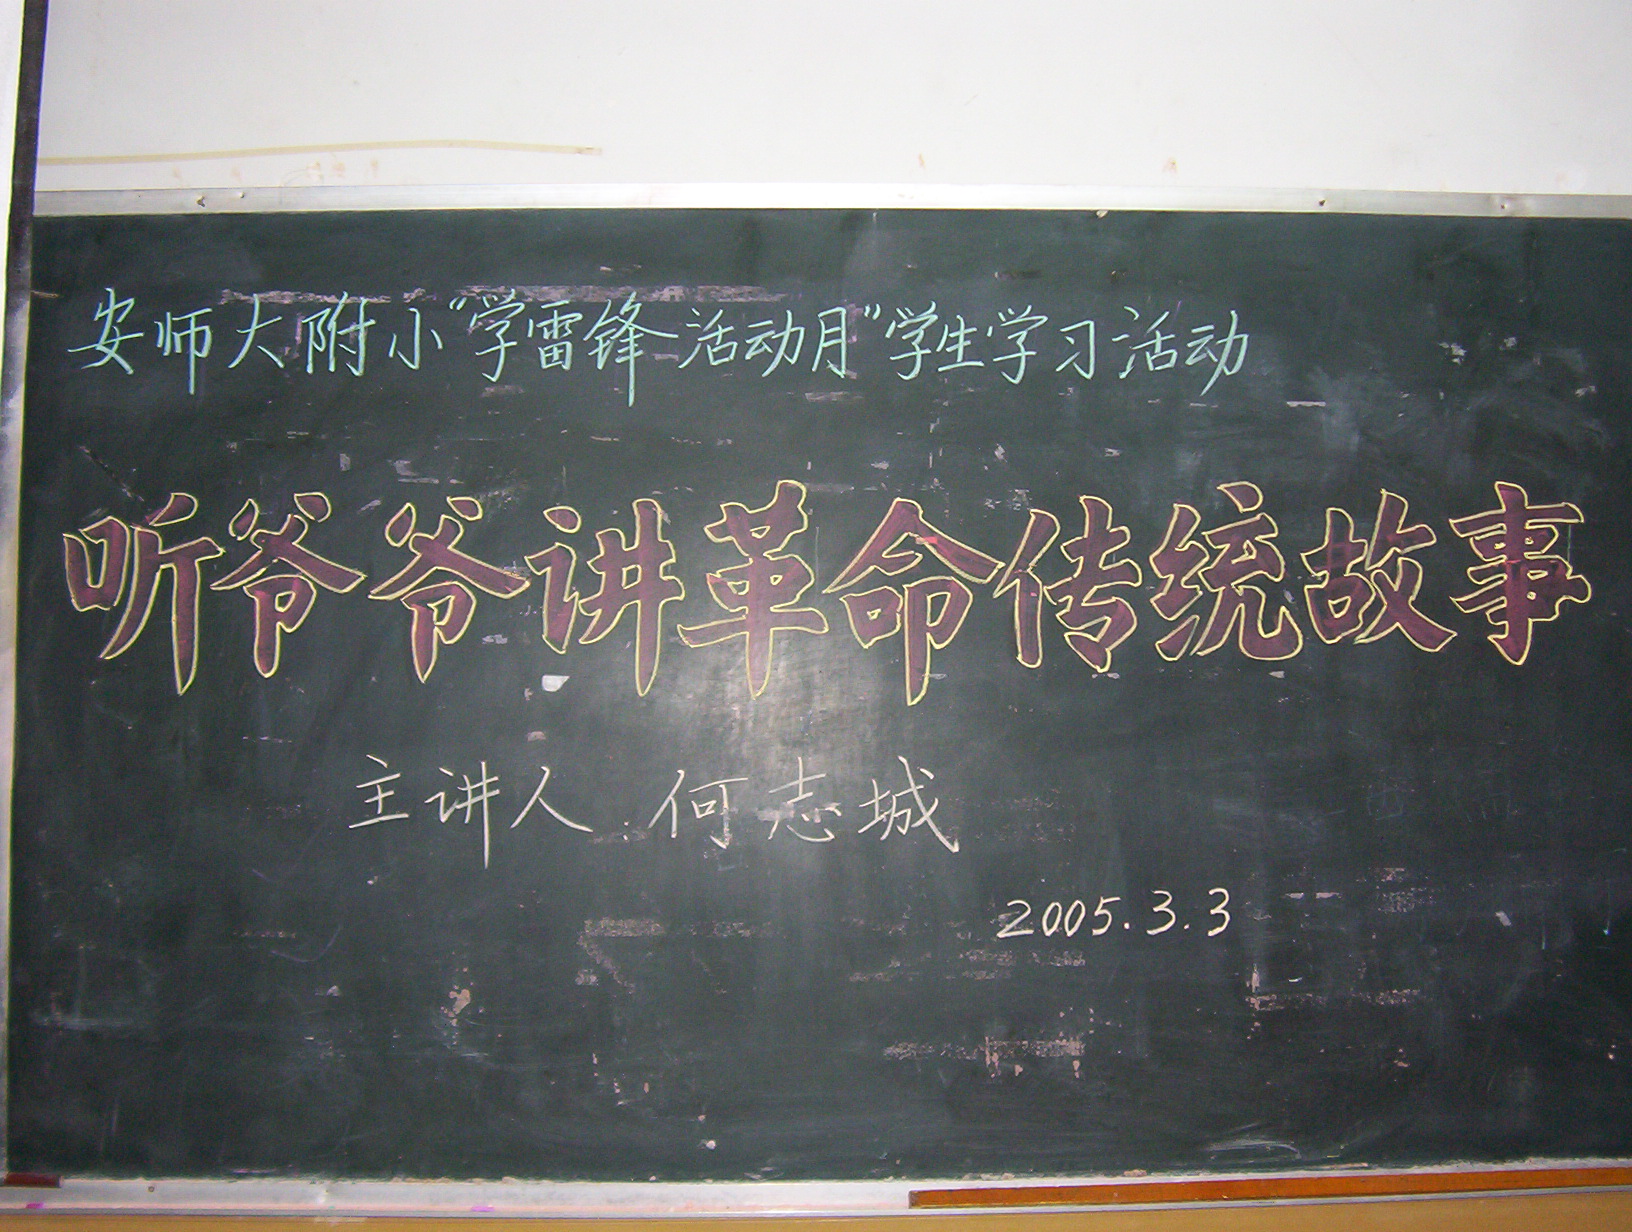 安师大附小“学雷锋活动月”学生学习活动
听爷爷讲革命传统故事
主讲人:何志城
2005.3.3